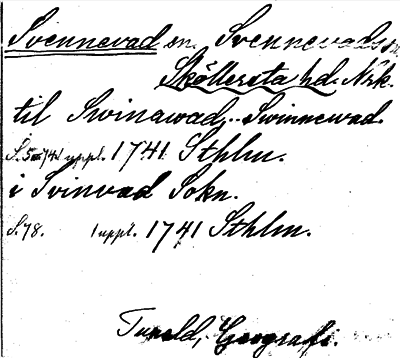 Svennevad sn. Svennevads sn
Sköllersta hd. Nrk.
til Swinawad, Swinnewad.
S. 5 741 uppl. 1741 Sthlm.
i Svinvad Sokn.
S. 78. 1 uppl. 1741 Sthlm.
Tuneld, Geografi.